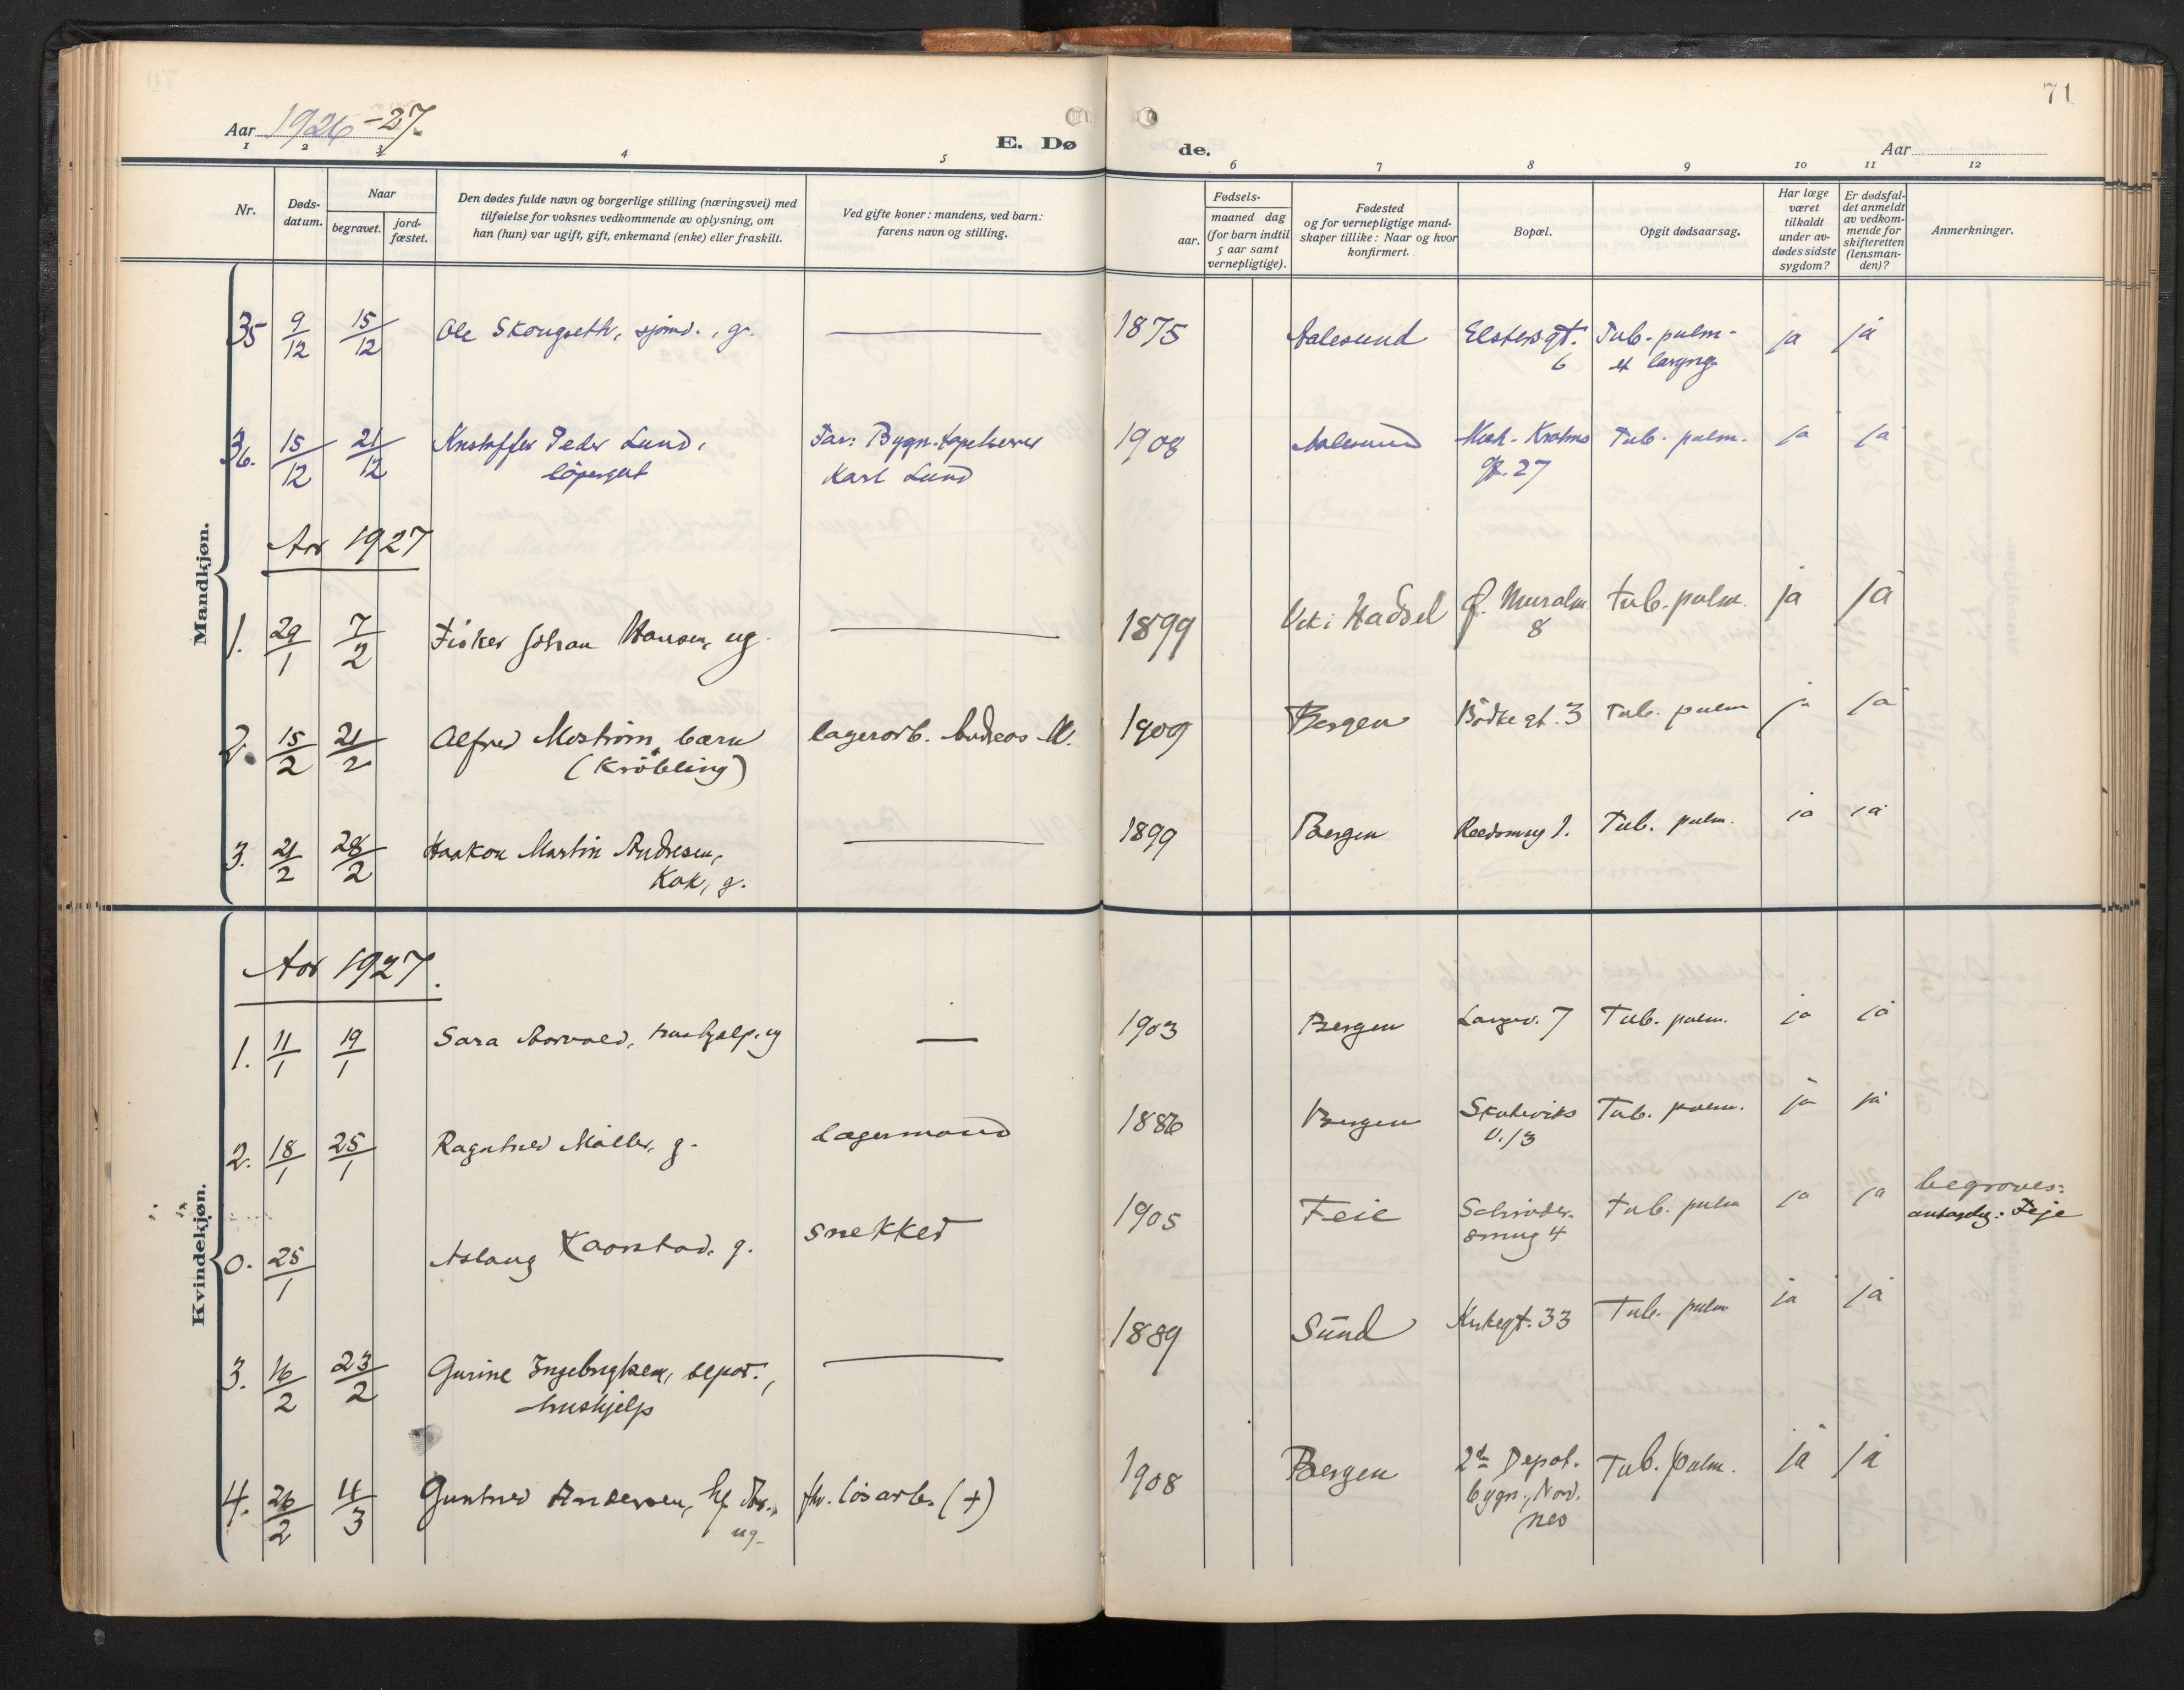 71
Aar 1926-27.
E. Dø de.
Aar
1 2 3 4 5 6 7 8 9 10 11 12
Nr.
Døds-
datum.
Naar
begravet.
jord-
fæstet.
Den dødes fulde navn og borgerlige stilling (næringsvei) med
tilføielse for voksnes vedkommende av oplysning, om
han (hun) var ugift, gift, enkemand (enke) eller fraskilt.
Ved gifte koner: mandens, ved barn:
farens navn og stilling.
Fødsels-
aar.
maaned dag
(for barn indtil
5 aar samt
vernepligtige).
Fødested
og for vernepligtige mand-
skaper tillike: Naar og hvor
konfirmert.
Bopæl.
Opgit dødsaarsag.
Har læge
været
tilkaldt
under av-
dødes sidste
sygdom?
Er dødsfal-
det anmeldt
av vedkom-
mende for
skifteretten
(lensman-
den)?
Anmerkninger.
Mandkjøn.
35 9/12 15/12 Ole Skougseth, sjømd., g. 1875 Aalesund Elstersgt. Tub. pulm. ja ja
6 et laryng.
36. 15/12 21/12 Kristoffer Peder Lund, Far: Bygn. 1908 Aalesund Mich. Krohns Tub. pulm. ja ja
løpergut Karl Lund gt. 27
Aar 1927
1. 29/1 7/2 Fisker Johan Hansen, ug. 1899 Hadsel tub. pulm. ja ja
8
2. 15/2 21/2 Alfred Mostrøm, barn lagerarb. Andreas M. 1909 Bergen Bødkegt. 3 Tub. pulm ja ja
(Krøbling)
3. 21/2 28/2 Haakon Martin Andresen, 1899 Bergen 1. Tub. pulm. ja ja
Kok, g.
Kvindekjøn.
Aar 1927.
1. 11/1 19/1 Sara hushjelp. ug 1903 Bergen 7 Tub. pulm. ja ja
2. 18/1 25/1 Ragnhild Møller, g. lagermand 1886 Bergen Skuteviks Tub. pulm. ja ja
v. 13
0. 25/1 Aslaug Kaarstad, g. snekker 1905 Feie Schrøder- Tub. pulm ja ja begraves:
smug 4 Feje
3. 16/2 23/2 Gurine Ingebrigtsen, separ., 1889 Sund Kirkegt. 33 Tub. pulm ja ja
hushjelp
4. 26/2 4/3 Gunhild Andersen, fhv. løsarb. (+) 1908 Bergen 2den Depot. Tub. pulm. ja ja
ug. bygn., Nord.
nes